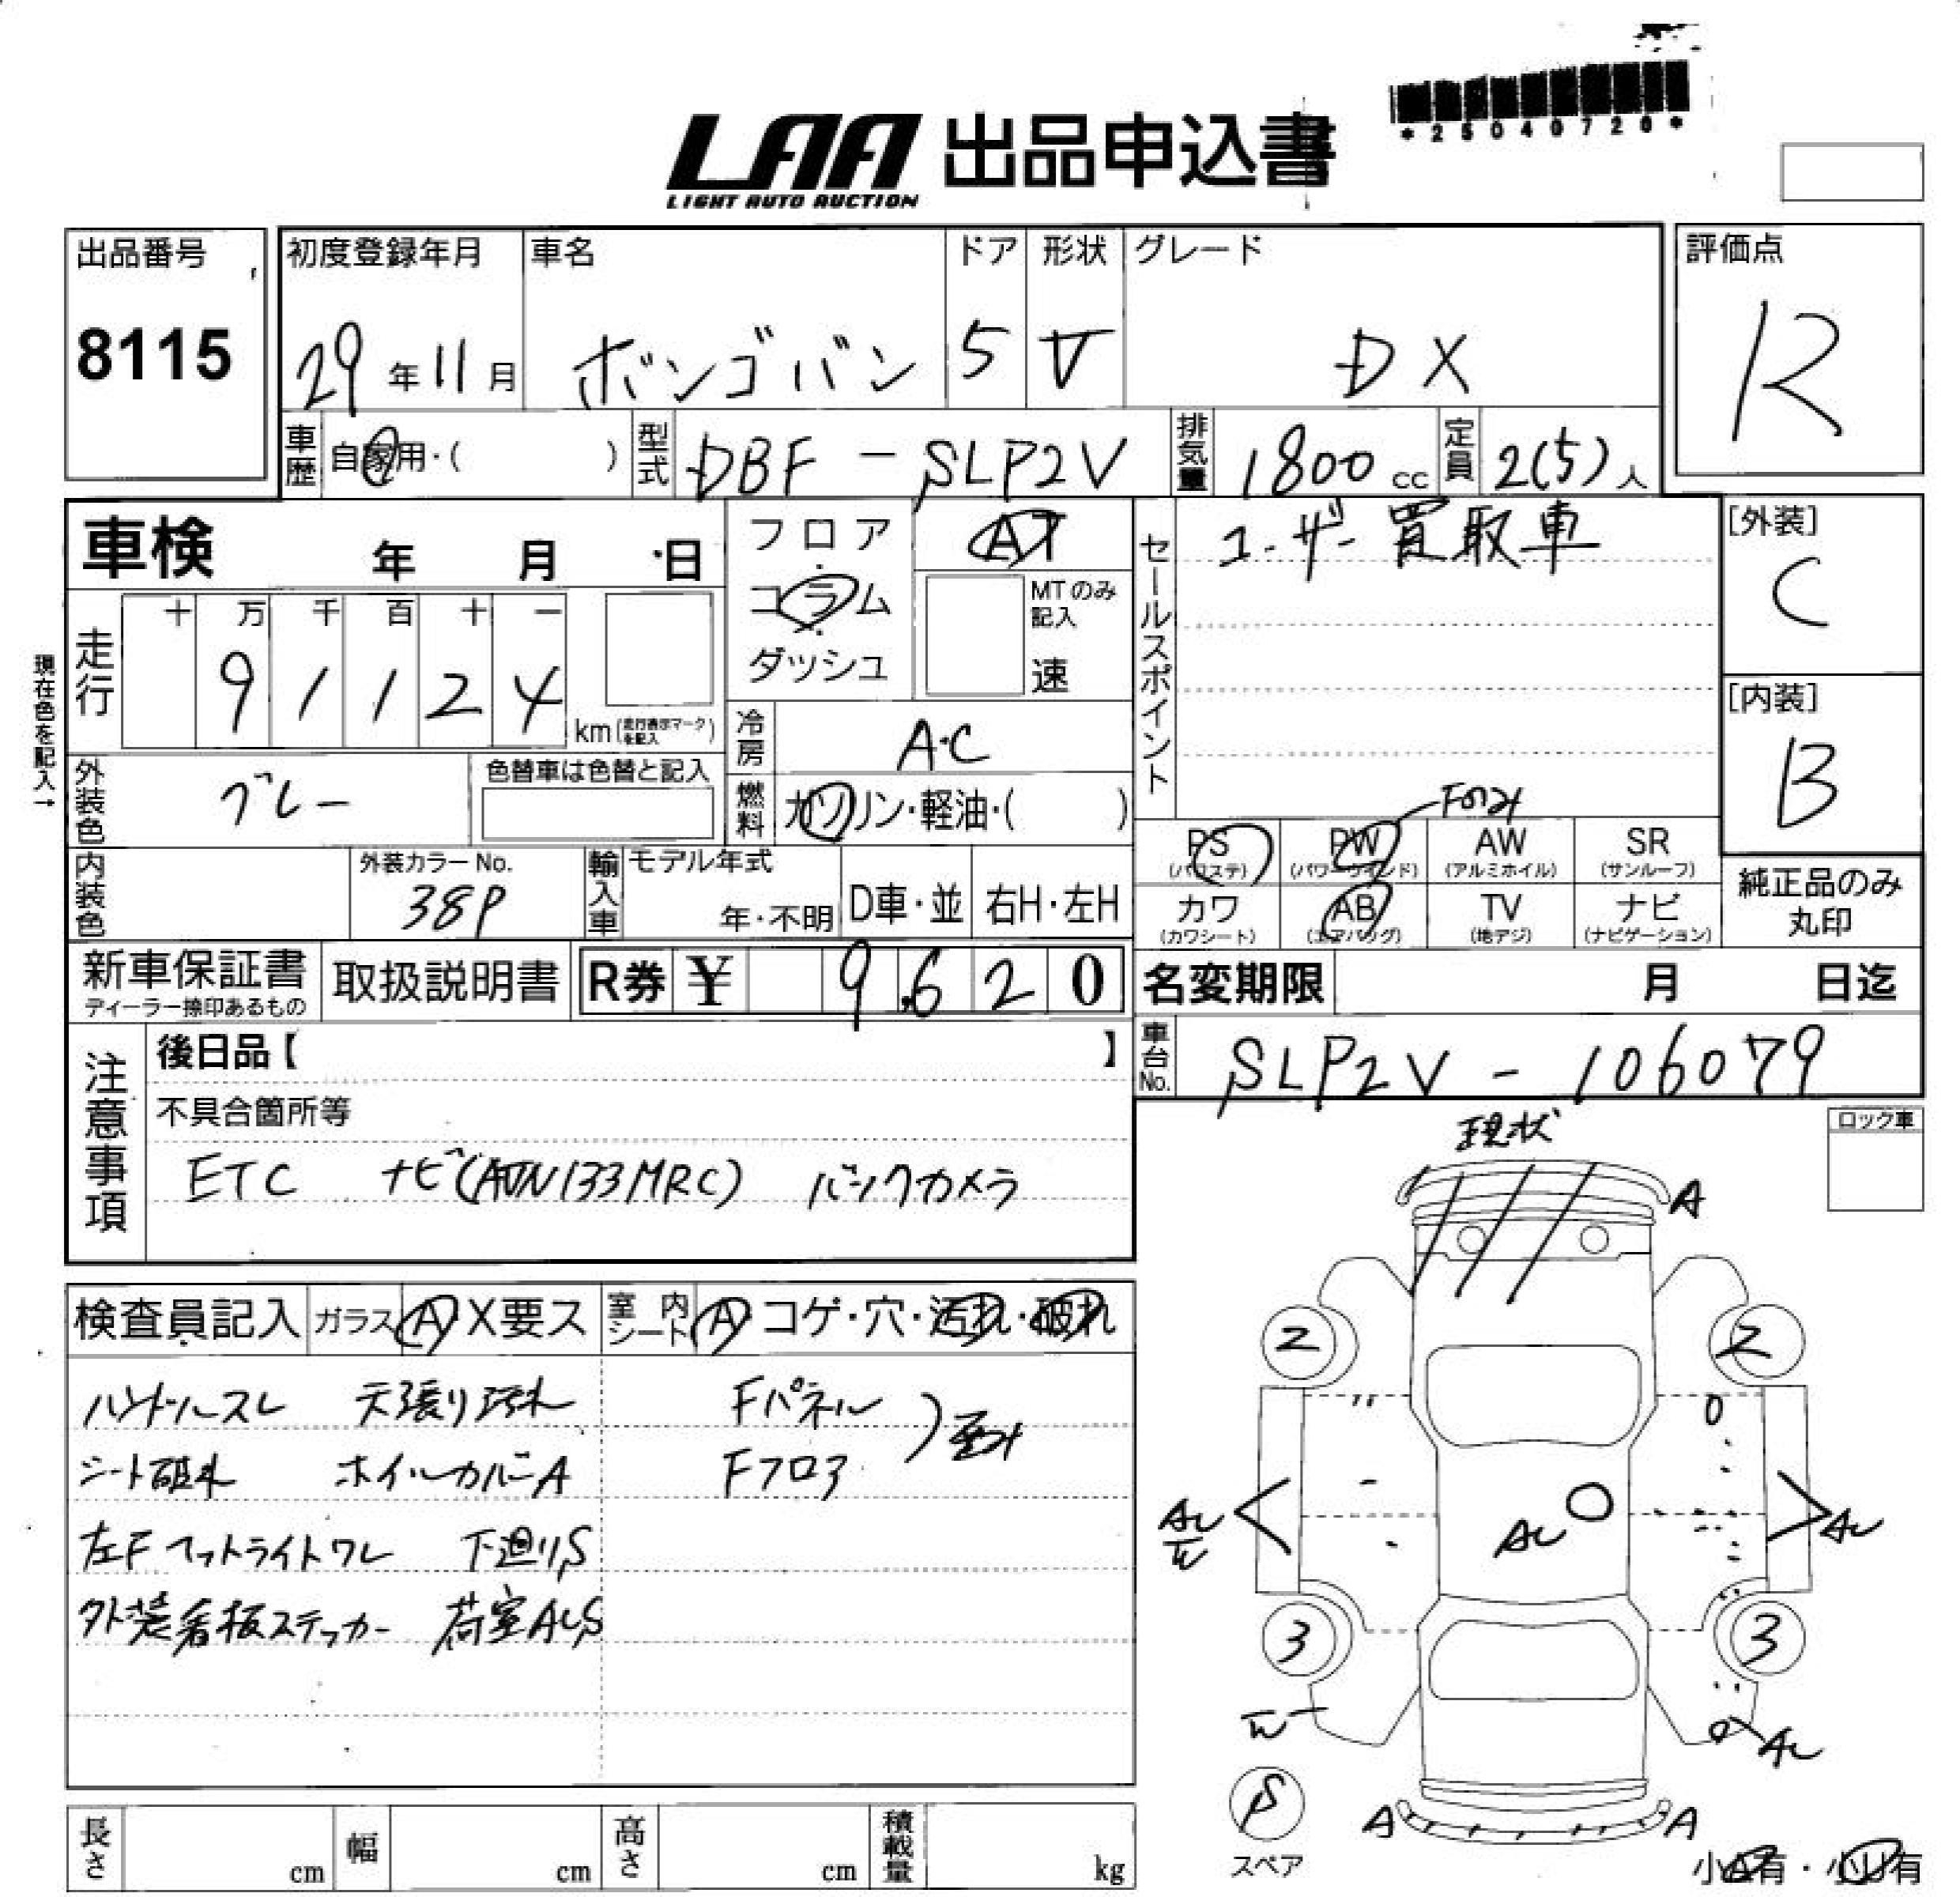 *25040720*
LAA 出品申込書
LIGHT AUTO AUCTION
出品番号
8115
初度登録年月
29年11月
車名
ボンゴバン
ドア
5
形状
V
グレード
DX
評価点
R
車歴
自家用・( )
型式
DBF-SLP2V
排気量
1800cc
定員
2(5)人
車検 年 月 日
フロア
・
コラム
・
ダッシュ
AT
MTのみ
記入
速
セールスポイント
ユーザー買取車
[外装]
C
[内装]
B
現在色を記入→
走行
十 万 千 百 十 一
9 1 1 2 4
km(走行表示マークを記入)
冷房
A・C
燃料
ガソリン・軽油・( )
外装色
グレー
色替車は色替と記入
内装色
外装カラーNo.
38P
輸入車
モデル年式
年・不明
D車・並
右H・左H
Fのみ
PS
(パワステ)
PW
(パワーウインド)
AW
(アルミホイル)
SR
(サンルーフ)
カワ
(カワシート)
AB
(エアバッグ)
TV
(地デジ)
ナビ
(ナビゲーション)
純正品のみ
丸印
新車保証書
ディーラー捺印あるもの
取扱説明書
R券 ¥ 9,620
名変期限 月 日迄
車台No.
SLP2V-106079
注意事項
後日品【 】
不具合箇所等
ETC ナビ(AVN133MRC) バックカメラ
現状
ロック車
検査員記入
ガラス A・X要ス
室内シート A・コゲ・穴・汚れ・破れ
ハンドルスレ 天張り汚れ Fパネル
シート破れ ホイルカバーA Fフロア
左Fフットライトワレ 下廻りS
外装看板ステッカー 荷室AUS
A
2
2
AU
W
AU
AU
3
3
W
AU
S
スペア
A
A
小A有・小U有
長さ cm
幅 cm
高さ cm
積載量 kg